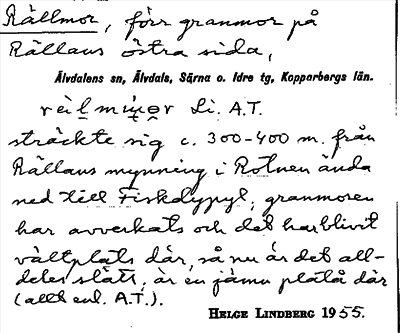 Rällmor, förr granmor på
Rällans östra sida,
Älvdalens sn, Älvdals, Särna o. Idre tg, Kopparbergs län.
Li. A.T.
sträckte sig c. 300-400 m. från
Rällans mynning i Rotnen ända
ned till Fiskdypyl; granmoren
har avverkats och det har blivit
vältplats där, så nu är det all-
deles slätt, är en jämn platå där
(allt enl. A.T.).
HELGE LINDBERG 1955.